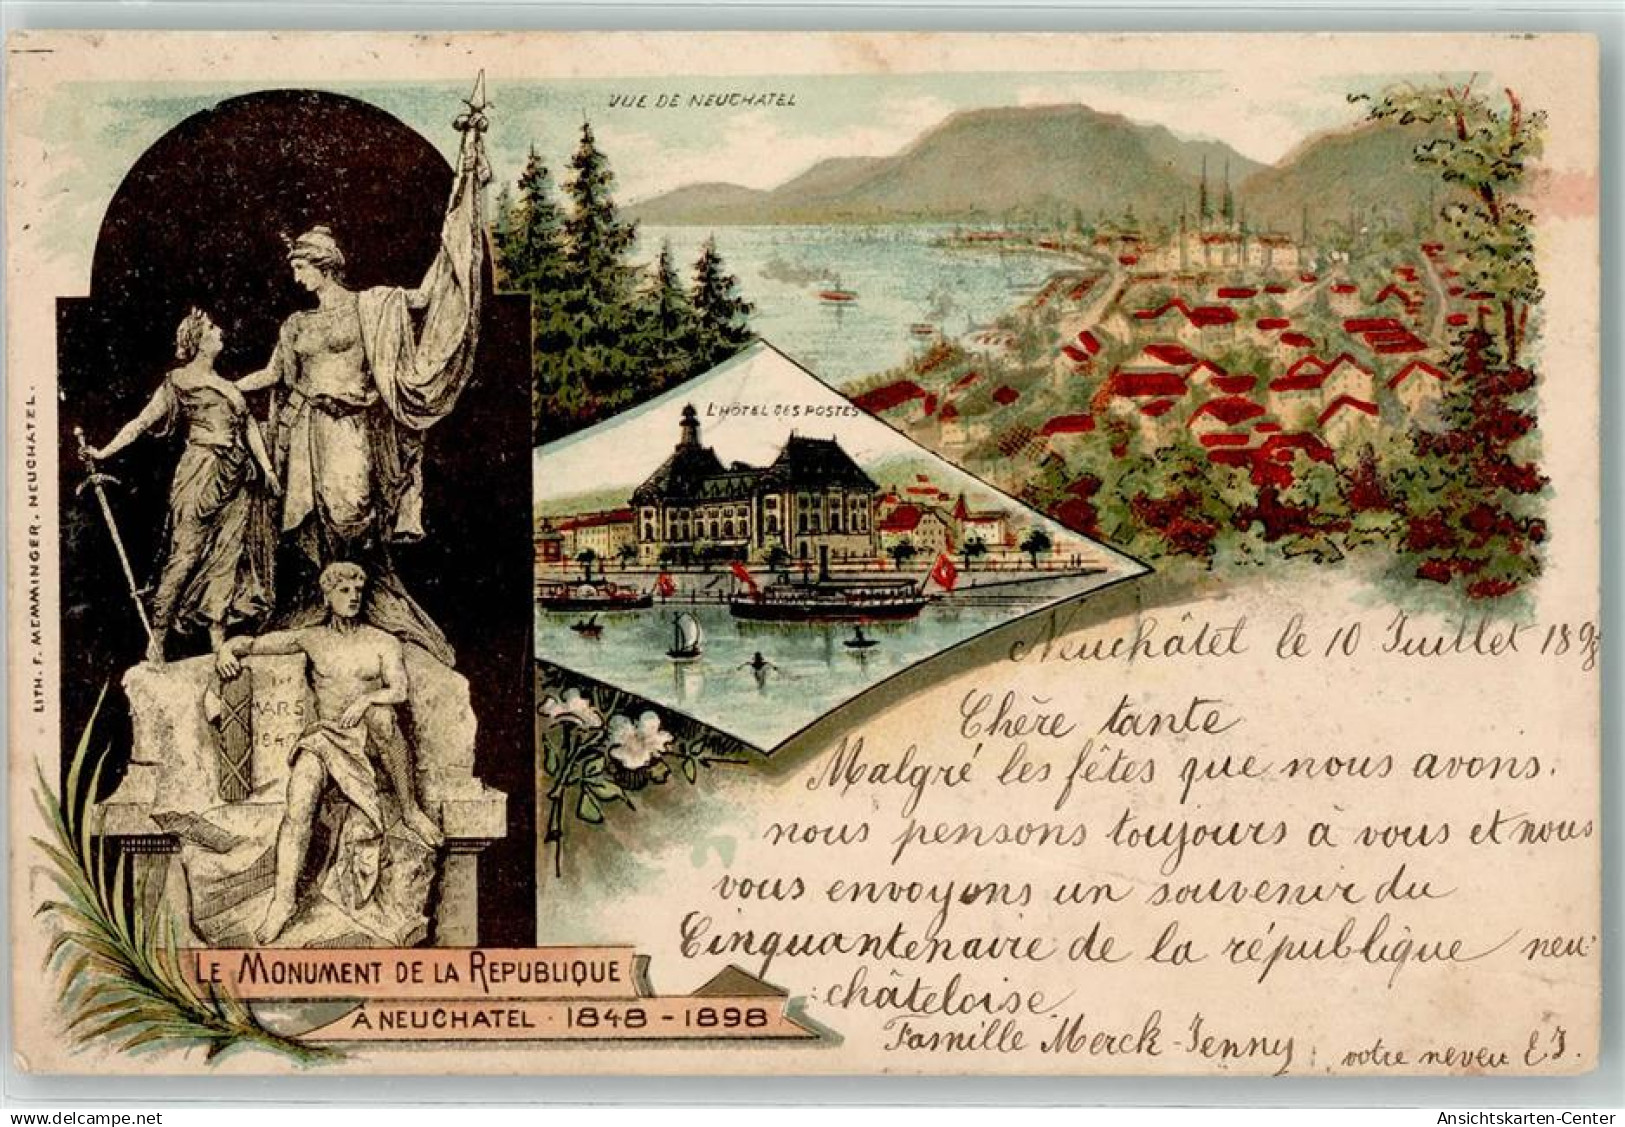 VUE DE NEUCHATEL
L'HÔTEL DES POSTES
LITH. F. MEMMINGER. NEUCHATEL.
1er
MARS
1848
LE MONUMENT DE LA REPUBLIQUE
À NEUCHATEL · 1848 - 1898
Neuchâtel le 10 Juillet 1898
Chère tante
Malgré les fêtes que nous avons.
nous pensons toujours à vous et nous
vous envoyons un souvenir du
Cinquantenaire de la république neu-
:châteloise.
Famille Merck-Jenny : votre neveu E J.
Ansichtskarten-Center